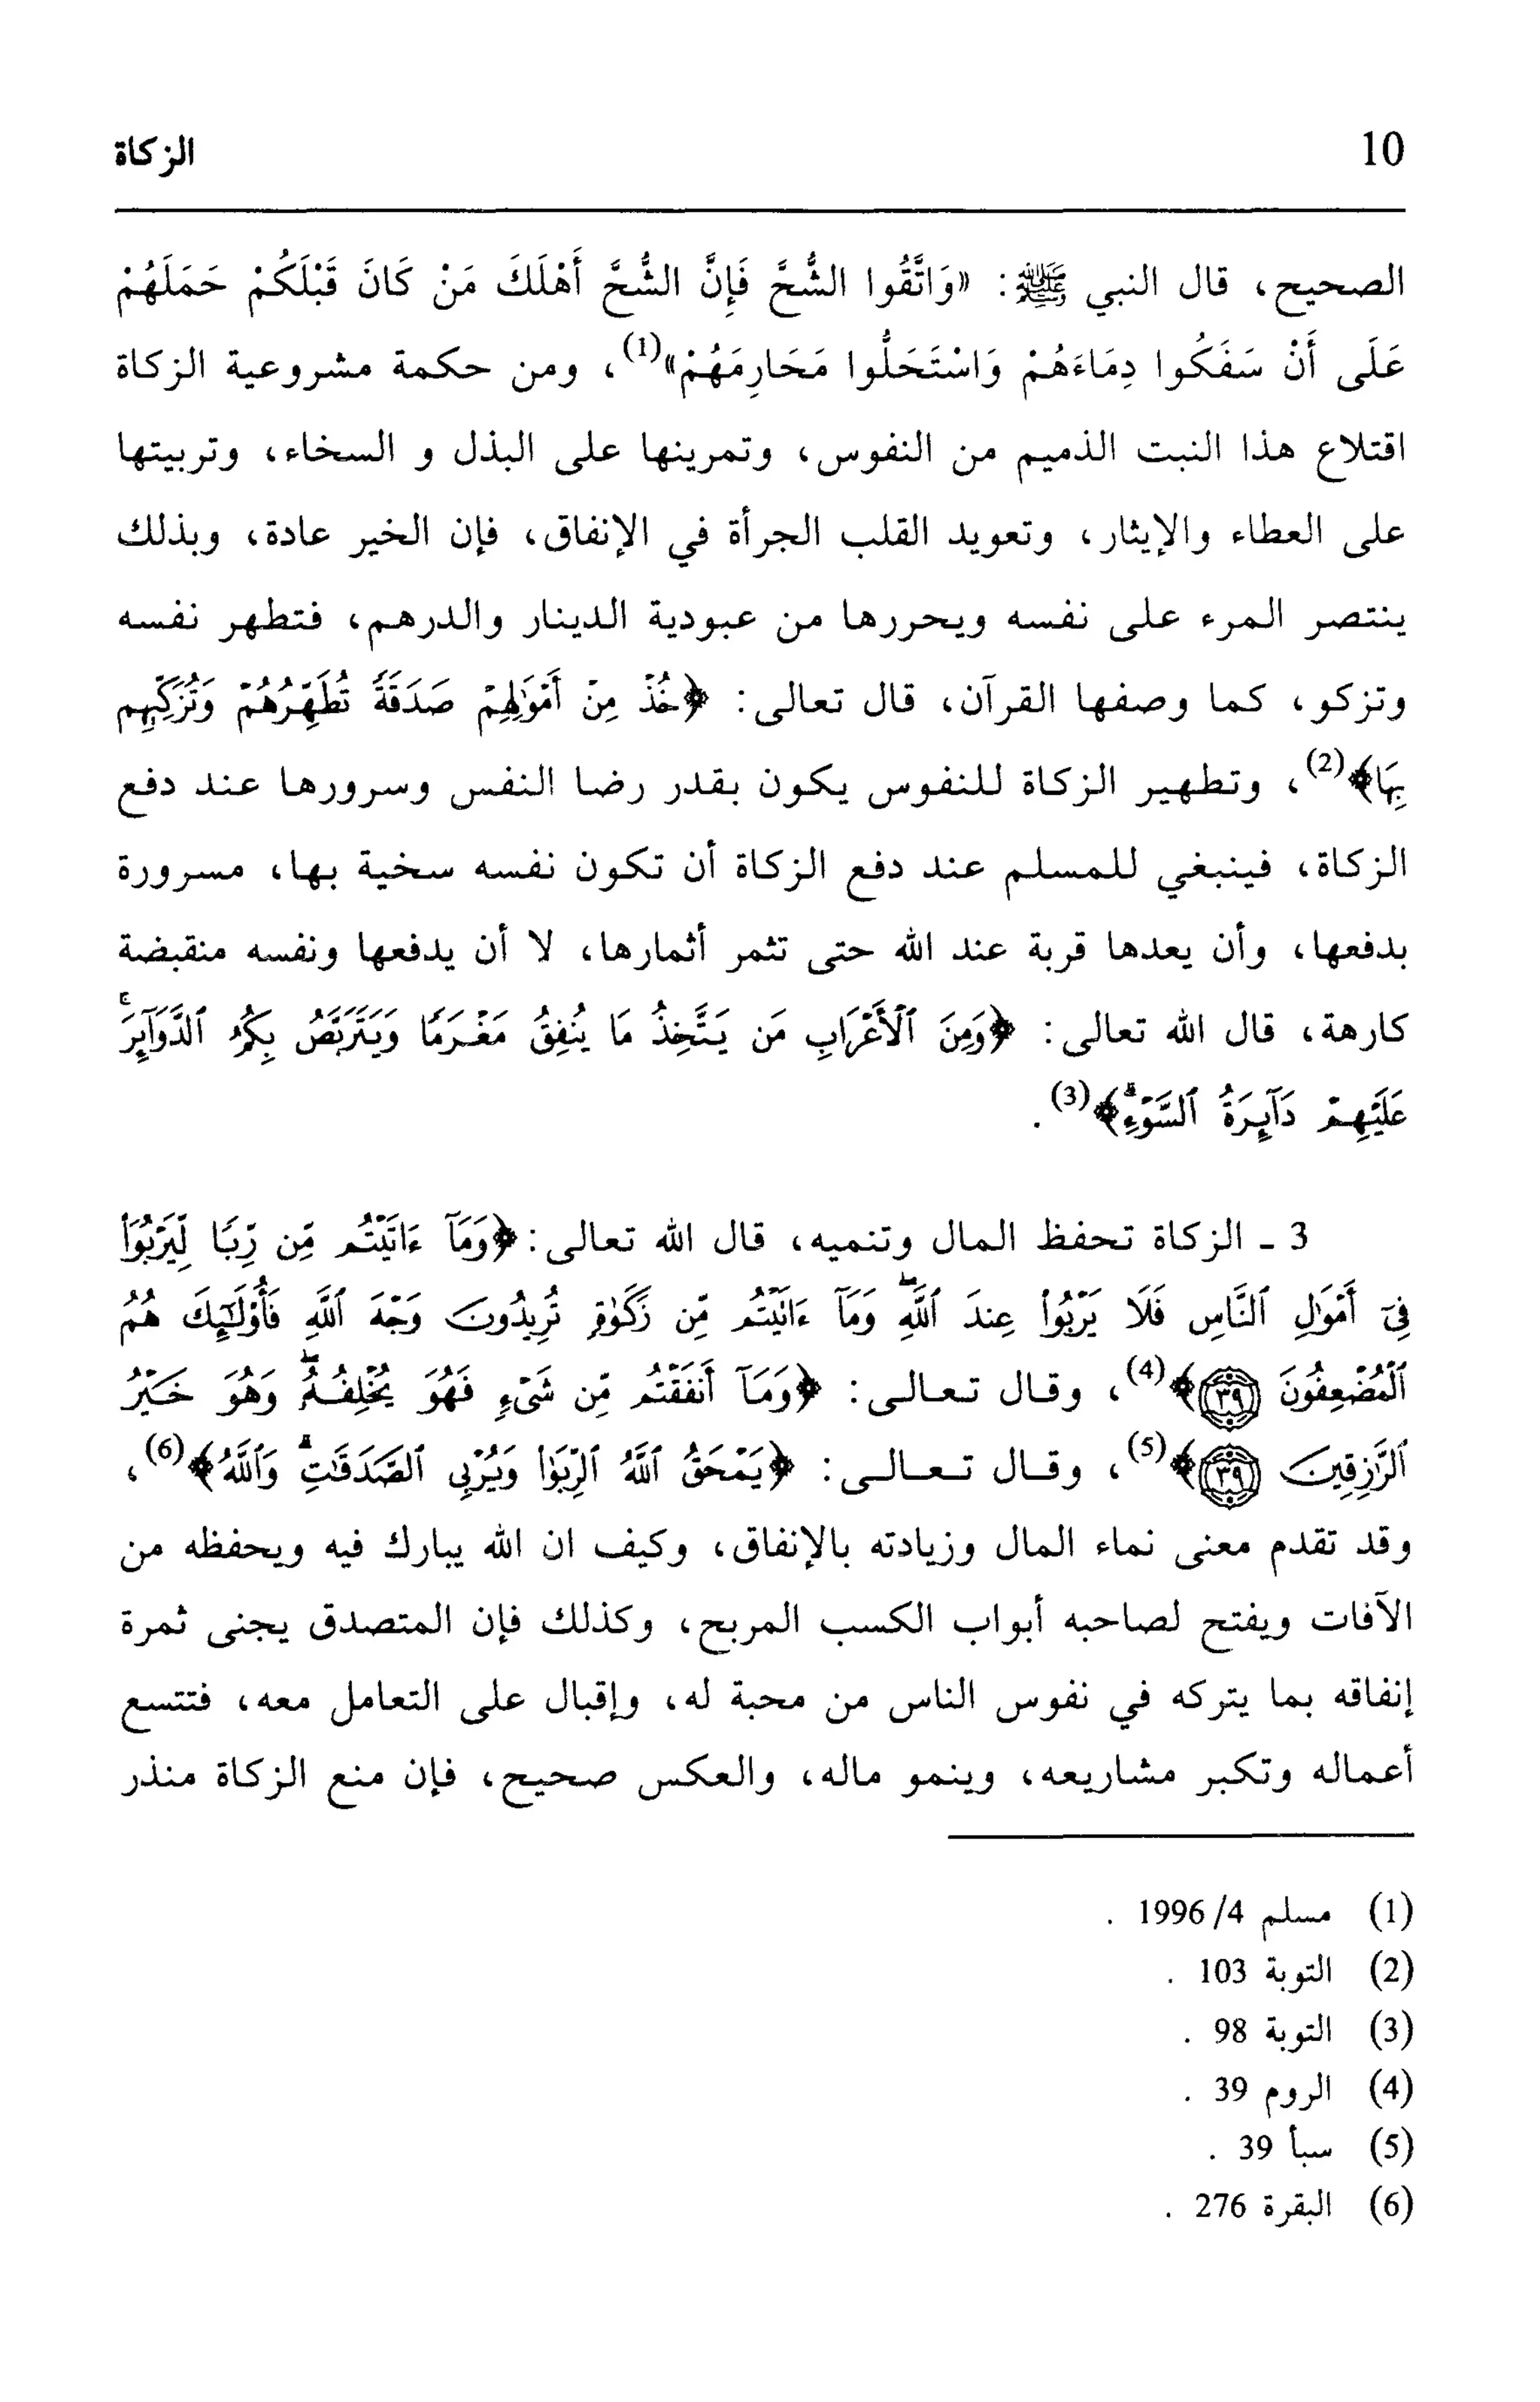 10
الزكاة
الصحيح، قال النبي ﷺ: «وَاتَّقُوا الشُّحَّ فَإِنَّ الشُّحَّ أَهْلَكَ مَنْ كَانَ قَبْلَكُمْ حَمَلَهُمْ
عَلَى أَنْ سَفَكُوا دِمَاءَهُمْ وَاسْتَحَلُّوا مَحَارِمَهُمْ»(1)، ومن حكمة مشروعية الزكاة
اقتلاع هذا النبت الذميم من النفوس، وتمرينها على البذل و السخاء، وتربيتها
على العطاء والإيثار، وتعويد القلب الجرأة في الإنفاق، فإن الخير عادة، وبذلك
ينتصر المرء على نفسه ويحررها من عبودية الدينار والدرهم، فتطهر نفسه
وتزكو، كما وصفها القرآن، قال تعالى: ﴿خُذْ مِنْ أَمْوَٰلِهِمْ صَدَقَةً تُطَهِّرُهُمْ وَتُزَكِّيهِم
بِهَا﴾(2)، وتطهير الزكاة للنفوس يكون بقدر رضا النفس وسرورها عند دفع
الزكاة، فينبغي للمسلم عند دفع الزكاة أن تكون نفسه سخية بها، مسرورة
بدفعها، وأن يعدها قربة عند الله حتى تثمر أثمارها، لا أن يدفعها ونفسه منقبضة
كارهة، قال الله تعالى: ﴿وَمِنَ ٱلْأَعْرَابِ مَن يَتَّخِذُ مَا يُنفِقُ مَغْرَمًا وَيَتَرَبَّصُ بِكُمُ ٱلدَّوَآئِرَ ۚ
عَلَيْهِمْ دَآئِرَةُ ٱلسَّوْءِ ۗ﴾(3).
3 - الزكاة تحفظ المال وتنميه، قال الله تعالى: ﴿وَمَآ ءَاتَيْتُم مِّن رِّبًا لِّيَرْبُوَا۟
فِىٓ أَمْوَٰلِ ٱلنَّاسِ فَلَا يَرْبُوا۟ عِندَ ٱللَّهِ ۖ وَمَآ ءَاتَيْتُم مِّن زَكَوٰةٍ تُرِيدُونَ وَجْهَ ٱللَّهِ فَأُو۟لَٰٓئِكَ هُمُ
ٱلْمُضْعِفُونَ ٣٩﴾(4)، وقال تعالى: ﴿وَمَآ أَنفَقْتُم مِّن شَىْءٍ فَهُوَ يُخْلِفُهُۥ ۖ وَهُوَ خَيْرُ
ٱلرَّٰزِقِينَ ٣٩﴾(5)، وقال تعالى: ﴿يَمْحَقُ ٱللَّهُ ٱلرِّبَوٰا۟ وَيُرْبِى ٱلصَّدَقَٰتِ ۗ وَٱللَّهُ﴾(6)،
وقد تقدم معنى نماء المال وزيادته بالإنفاق، وكيف ان الله يبارك فيه ويحفظه من
الآفات ويفتح لصاحبه أبواب الكسب المربح، وكذلك فإن المتصدق يجنى ثمرة
إنفاقه بما يتركه في نفوس الناس من محبة له، وإقبال على التعامل معه، فتتسع
أعماله وتكبر مشاريعه، وينمو ماله، والعكس صحيح، فإن منع الزكاة منذر
(1) مسلم 4/ 1996 .
(2) التوبة 103 .
(3) التوبة 98 .
(4) الروم 39 .
(5) سبأ 39 .
(6) البقرة 276 .